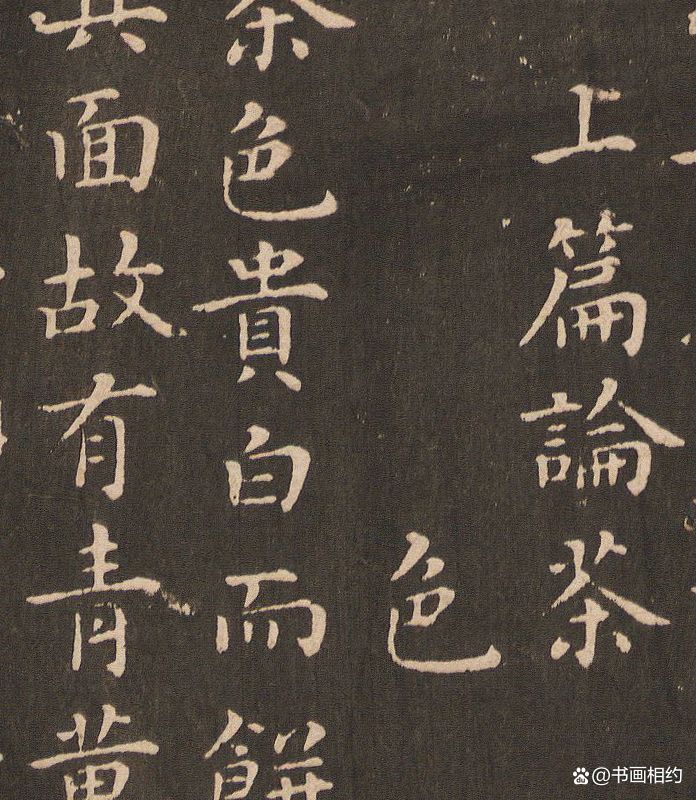 上篇論茶
色
茶色貴白而餅
其面故有青黄
@书画相约